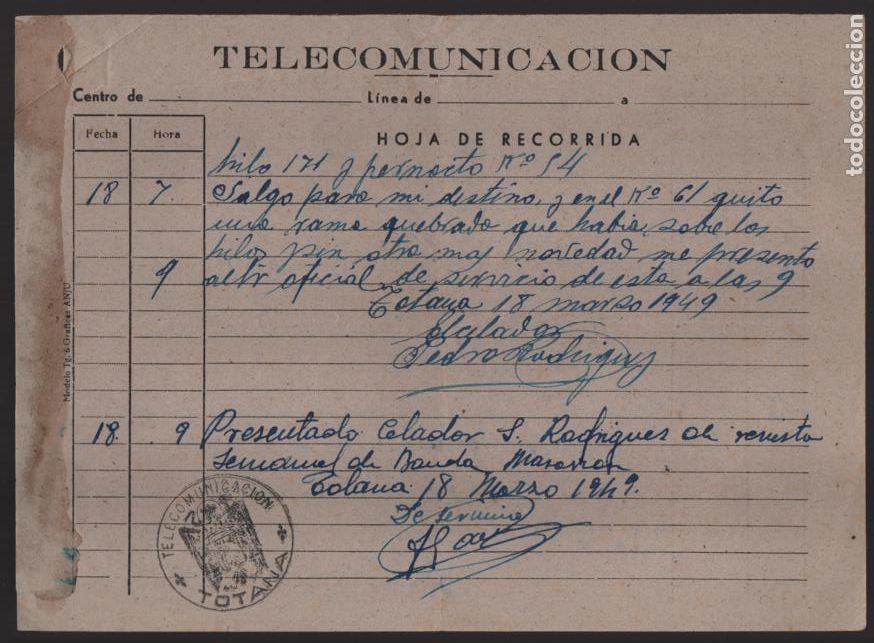 TELECOMUNICACION
Centro de Línea de a
Fecha Hora
HOJA DE RECORRIDA
hilo 171 y pernocto Kº 54
18 7 Salgo para mi destino, y en el Kº 61 quito
una rama quebrada que habia sobre los
hilos sin otra may novedad me presento
9 al Sr oficial de servicio de esta a las 9
Totana 18 marzo 1949
El Celador
Pedro Rodriguez
18 9 Presentado Celador S. Rodriguez de revista
Semanal de Banda
Totana 18 Marzo 1949.
De servicio
TELECOMUNICACION
TOTANA
Modelo Tg. 6-Graficas ANJU
todocoleccion